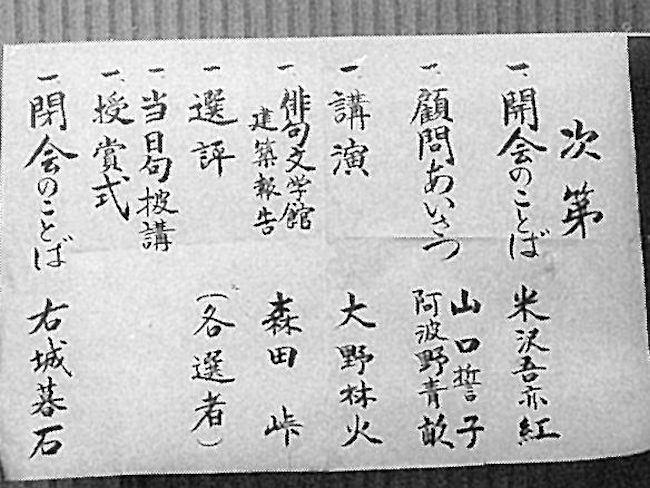 次第
一、開会のことば 米沢吾亦紅
一、顧問あいさつ 山口誓子
阿波野青畝
一、講演 大野林火
一、俳句文学館
建築報告 森田 峠
一、選評 (各選者)
一、当日句披講
一、授賞式
一、閉会のことば 右城暮石